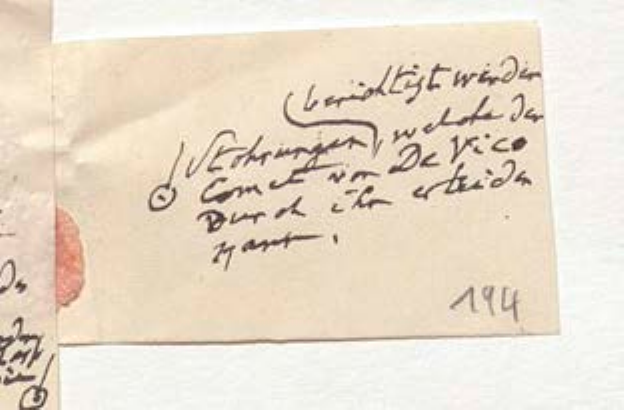 berichtigt werden
Störungen, welche der
Comet von De Vico
durch ihn erleiden
kann.
194